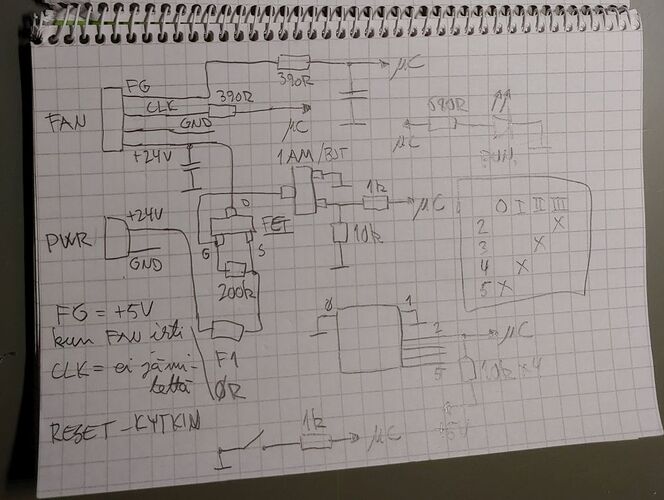 FG
390R
µC
FAN
CLK
390R
GND
µC
+24V
680R
µC
1AM/BJT
1k
µC
D
FET
G
S
10k
PWR
+24V
GND
200k
0 I II III
2 X
3 X
4 X
5 X
FG = +5V
kun FAN irti
CLK = ei jänni-
tettä
F1
0R
8
1
2
µC
5
10k x4
+5V
RESET-KYTKIN
1k
µC